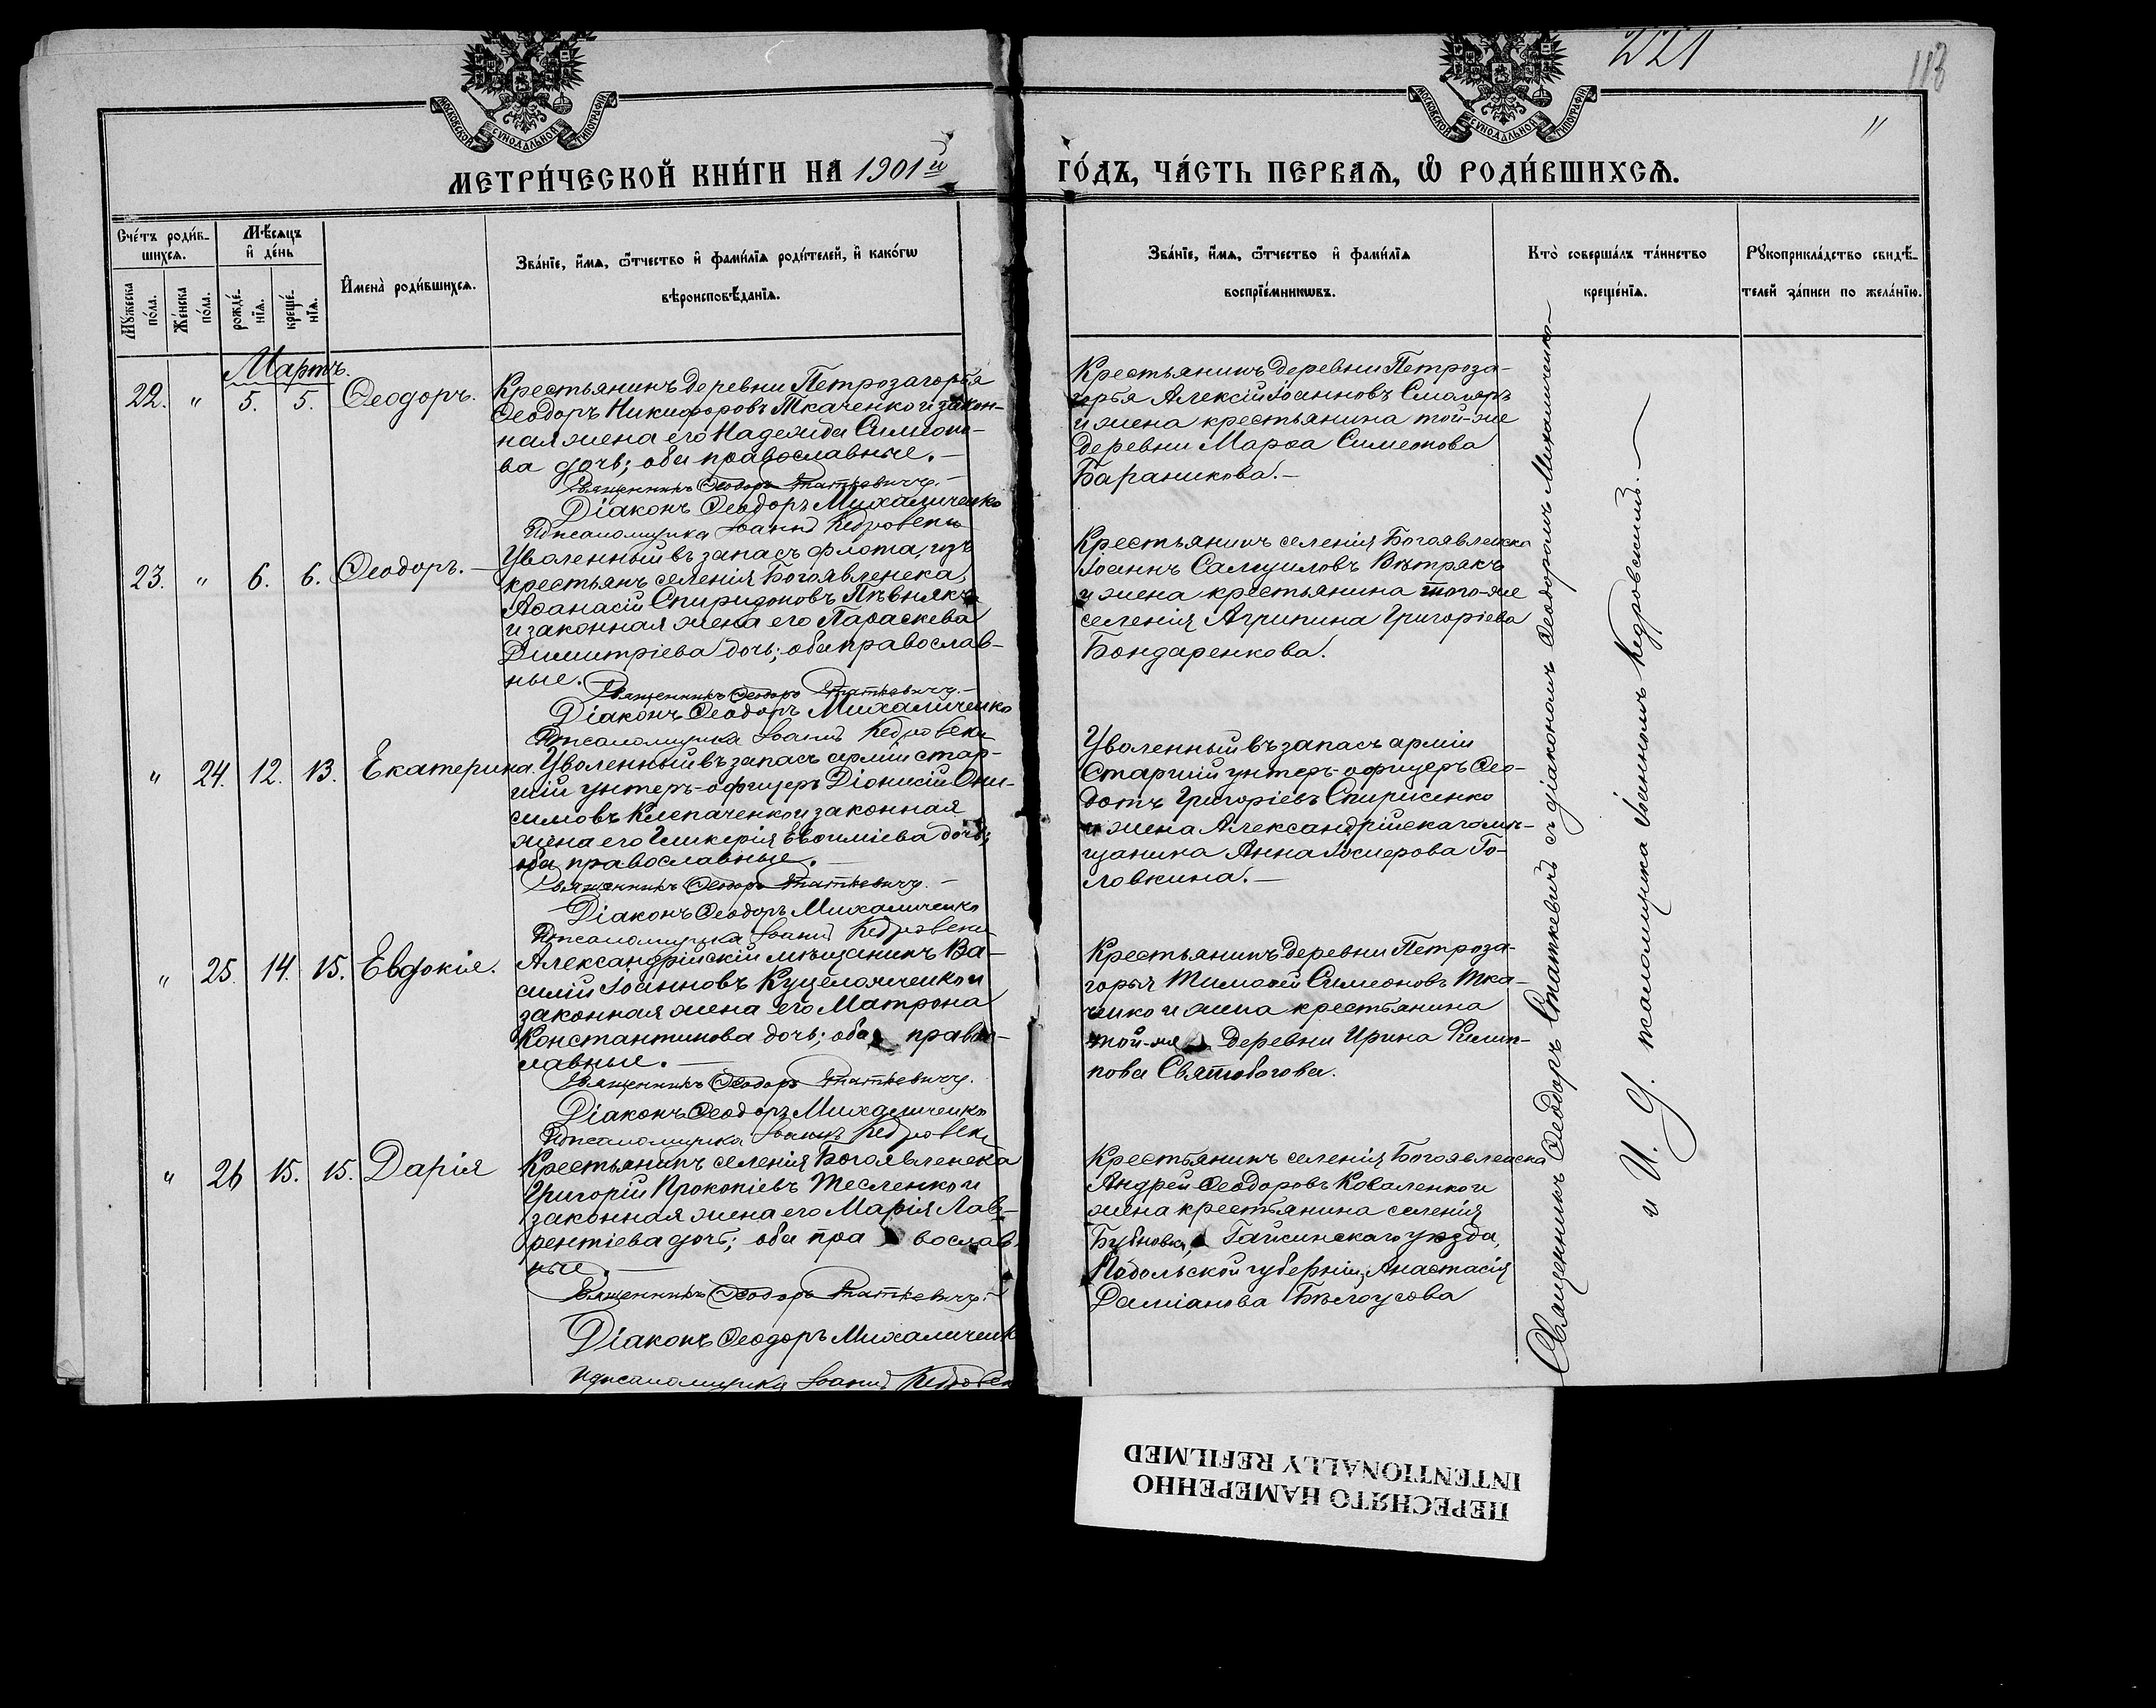 221
118
МОСКОВСКОЙ СѴНОДАЛЬНОЙ ТИПОГРАФІИ
МОСКОВСКОЙ СѴНОДАЛЬНОЙ ТИПОГРАФІИ
"
МЕТРИ́ЧЕСКОЙ КНИ́ГИ НА 1901й
ГО́ДЪ, ЧА́СТЬ ПЕРВАѦ, Ѡ҆ РОДИ́ВШИХСѦ.
Сче́тъ роди́в-
шихсѧ.
Мѣ́сѧцъ
и҆ де́нь
Мꙋжеска
по́ла.
Же́нска
по́ла.
рожде́-
нїѧ.
креще́-
нїѧ.
И҆мена̀ роди́вшихсѧ.
Зва́нїе, и҆́мѧ, ѻ҆́тчество и҆ фами́лїѧ роди́телей, и҆ како́гѡ
вѣроисповѣ́данїѧ.
Зва́нїе, и҆́мѧ, ѻ҆́тчество и҆ фами́лїѧ
воспрїе́мникѡвъ.
Кто̀ соверша́лъ та́инство
креще́нїѧ.
Рꙋкоприкла́дство свидѣ́-
телей за́писи по жела́нїю.
Мартъ.
22. " 5. 5. Ѳеодоръ.
Крестьянинъ деревни Петрозагорья
Ѳеодоръ Никифоровъ Ткаченко и закон-
ная жена его Надежда Симеоно-
ва дочь; оба православные.-
Священникъ Ѳеодоръ Статкевичъ.-
Діаконъ Ѳеодоръ Михаличенко
Псаломщика Іоаннъ Кедровски
Крестьянинъ деревни Петроза-
горья Алексій Іоанновъ Смоляръ
и жена крестьянина той-же
деревни Марѳа Симеонова
Бараникова.-
23. " 6. 6. Ѳеодоръ.-
Уволенный въ запасъ флота, изъ
крестьянъ селенія Богоявленска,
Аѳанасій Спиридоновъ Пѣвнякъ
и законная жена его Параскева
Димитріева дочь; оба православ-
ные.
Священникъ Ѳеодоръ Статкевичъ.-
Діаконъ Ѳеодоръ Михаличенко
Псаломщика Іоаннъ Кедровски
Крестьянинъ селенія Богоявленска
Іоаннъ Самуиловъ Вѣтрякъ
и жена крестьянина того-же
селенія Агрипина Григоріева
Бондаренкова.
" 24. 12. 13. Екатерина.
Уволенный въ запасъ арміи стар-
шій унтеръ-офицеръ Діонисій Они-
симовъ Клепаченко и законная
жена его Гликерія Евѳиміева дочь;
оба православные.-
Священникъ Ѳеодоръ Статкевичъ.-
Діаконъ Ѳеодоръ Михаличенко
Псаломщика Іоаннъ Кедровски
Уволенный въ запасъ арміи
Старшій унтеръ-офицеръ Ѳео-
дотъ Григоріевъ Спирисенко
и жена Александрійскаго мѣ-
щанина Анна Іосифова Го-
ловкина.-
" 25. 14. 15. Евдокія.
Александрійскій мѣщанинъ Ва-
силій Іоанновъ и
законная жена его Матрона
Константинова дочь; оба право-
славные.-
Священникъ Ѳеодоръ Статкевичъ.
Діаконъ Ѳеодоръ Михаличенко
Псаломщика Іоаннъ Кедровски
Крестьянинъ деревни Петроза-
горья Тимоѳей Симеоновъ Тка-
ченко и жена крестьянина
той-же деревни Ирина Филип-
пова Святобогова.
" 26 15. 15. Дарія
Крестьянинъ селенія Богоявленска
Григорій Прокопіевъ Тесленко и
законная жена его Марія Лав-
рентіева дочь; оба православ-
ные.-
Священникъ Ѳеодоръ Статкевичъ.-
Діаконъ Ѳеодоръ Михаличенк
Псаломщика Іоаннъ Кедровск
Крестьянинъ селенія Богоявленска
Андрей Ѳеодоровъ Коваленко и
жена крестьянина селенія
Бубновки, Гайсинскаго уѣзда,
Подольской губерніи, Анастасія
Даміанова Бѣлоусова
Священникъ Ѳеодоръ Статкевичъ съ діакономъ Ѳеодоромъ Михаличенко-
и И. д. псаломщика Іоанномъ Кедровскимъ.-
ПЕРЕСНЯТО НАМЕРЕННО
INTENTIONALLY REFILMED